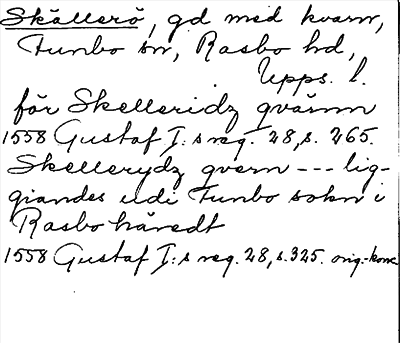 Skällerö, gd med kvarn,
Funbo sn, Rasbo hd,
Upps. l.
för Skelleridz qvärnn
1558 Gustaf I:s reg. 28, s. 265.
Skellerydz qvern --- lig-
giandes udi Funbo sokn i
Rasbo häredt
1558 Gustaf I:s reg. 28, s. 325. orig.-konc